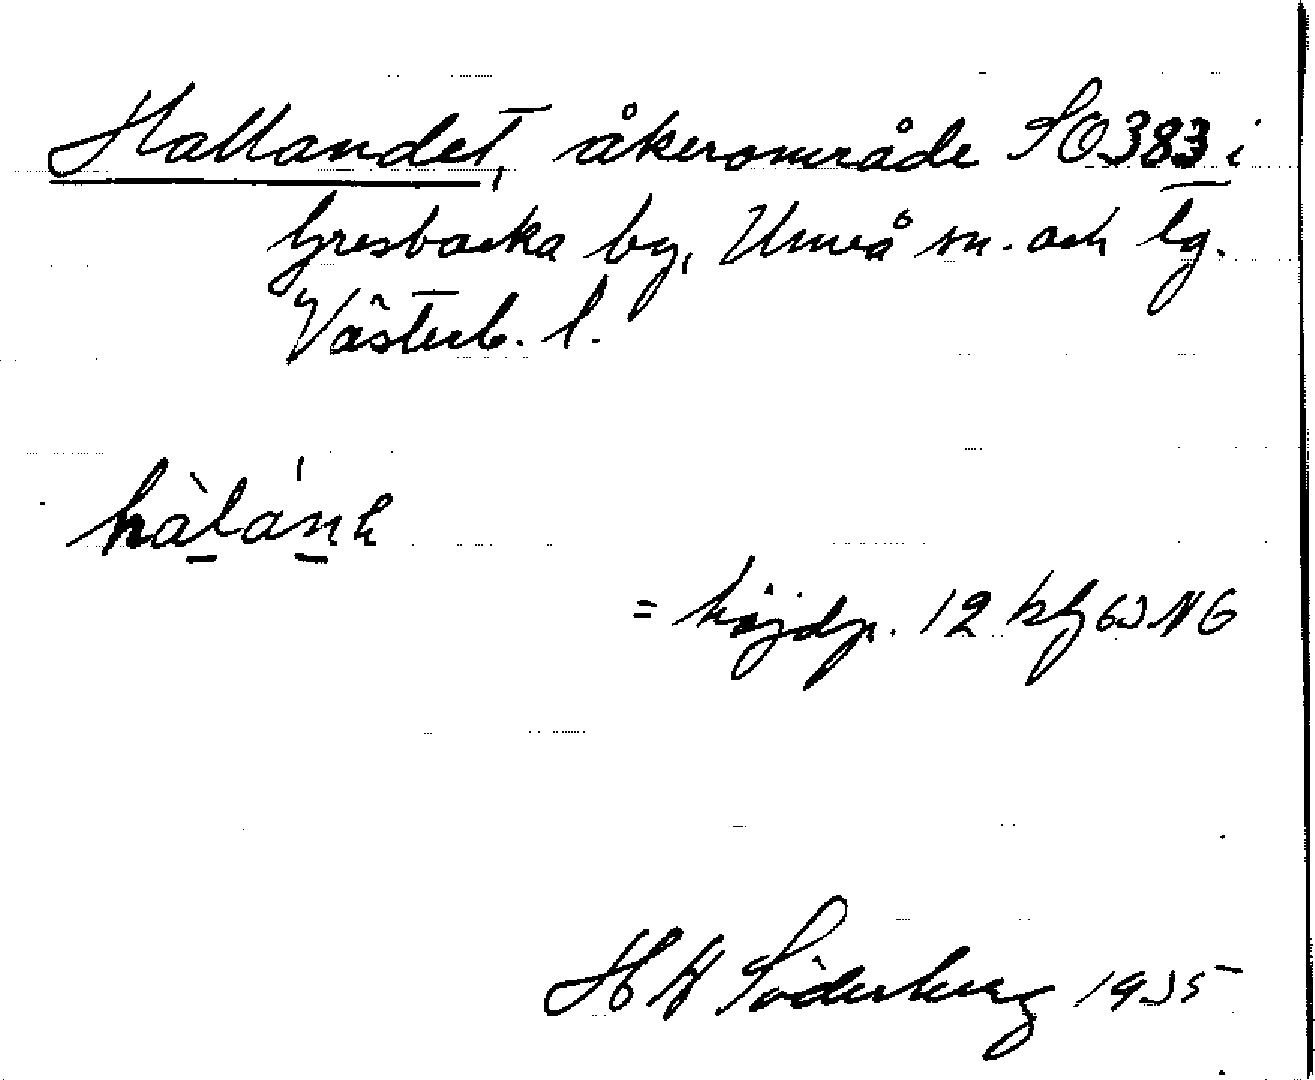 Hallandet, åkerområde SO383 i
Gresbacka by, Umeå sn. och tg.
Västerb. l.
= höjdp. 12
H W Söderberg 1935